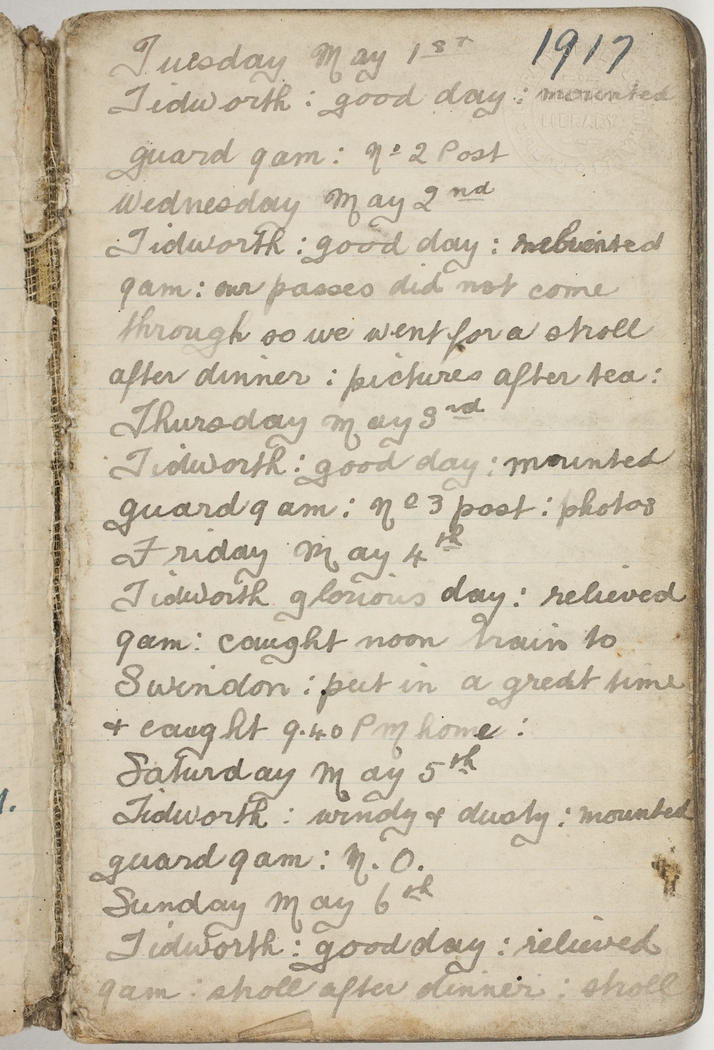 Tuesday May 1st 1917
Tidworth : good day : mounted
guard 9am : No 2 Post
Wednesday May 2nd
Tidworth : good day : relieved
9am : our passes did not come
through so we went for a stroll
after dinner : pictures after tea :
Thursday May 3rd
Tidworth : good day : mounted
guard 9am : No 3 post : photos
Friday May 4th
Tidworth glorious day : relieved
9am : caught noon train to
Swindon : put in a great time
& caught 9.40 PM home :
Saturday May 5th
Tidworth : windy & dusty : mounted
guard 9am : N. O.
Sunday May 6th
Tidworth : good day : relieved
9am : stroll after dinner : stroll